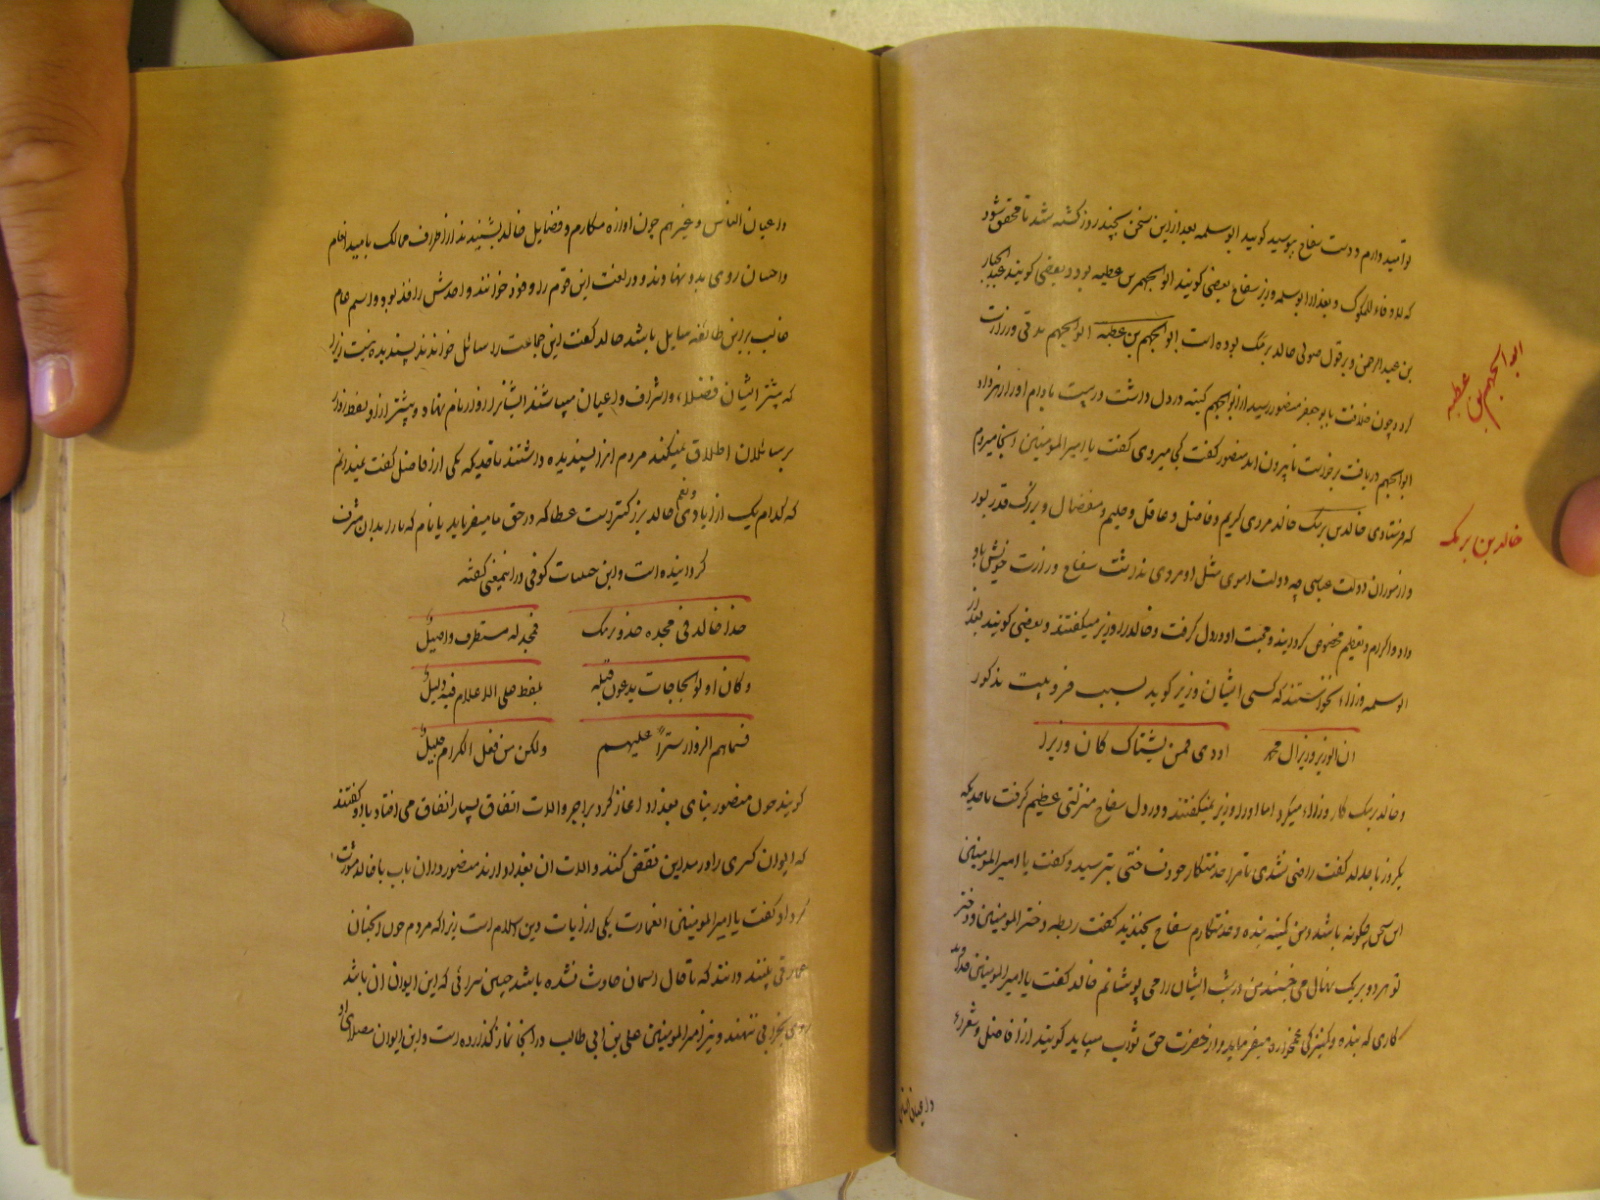 تو امید دارم و دست سفاح ببوسید گویند ابوسلمه بعد از این سخن بچند روز کشته شد تا محقق شود
که لا وفاء للملوک و بعد از ابوسلمه وزیر سفاح بعضی گویند ابوالجهم بن عطیه بود و بعضی گویند عبدالجبار
بن عبدالرحمن و بر قول صولی خالد برمک بوده است ابوالجهم بن عطیه ابوالجهم مدتی وزارت
کرد و چون خلافت بابوجعفر منصور رسید از ابوالجهم کینه در دل داشت در بادام او را زهر داد
ابوالجهم دریافت برخواست تا بیرون اید منصور گفت کجا میروی گفت یا امیرالمومنین انجا میروم
که فرستادی خالد بن برمک خالد مردی کریم و فاضل و عاقل و حلیم و مفضال و بزرک قدر بود
و در دولت عباسی چه دولت اموی مثل او مردی نداشت سفاح وزارت خویش باو
داد و اکرام و تعظیم مخصوص کردانید و محبت او در دل گرفت و خالد را وزیر میگفتند و بعضی گویند بعد از
ابوسلمه وزراء نخواستندکه کسی ایشان وزیر گوید بسبب بیت مذکور
ان الوزیر وزیر ال محمد اودی فمن یشناک کان وزیرا
و خالد برمک کار وزراء میکرد اما او را وزیر نمیگفتند و در دل سفاح منزلتی عظیم گرفت تا حدیکه
یکروز با خالد گفت راضی نشدی تا مرا خدمتکار خود نساختی بترسید و گفت یا امیرالمومنین
این سخن چگونه باشد و من کمینه بنده و خدمتکارم سفاح بخندید گفت ریطه دختر امیرالمومنین و دختر
تو هر دو بریک نهالی می خسبند من در شب ایشان را می پوشانم خالد گفت یا امیرالمومنین
کاری که بنده و کنیزکی میفرماید و از حضرت حق ثواب میبابد گویند از افاضل و شعراء
و اعیان الناس
ابوالجهم بن عطیه
خالد بن برمک
و اعیان الناس و غیرهم چون اوازه مکارم و فضایل خالد بشنیدند از اطراف ممالک بامید انعام
و احسان روی بدو نهادند و در لغت این قوم را وفود خوانند و احدش وافد بود و اسم عام
غالب بر این طائفه سایل باشد خالد گفت این جماعت را سائل خواندن پسندیده نیست زیرا
که بیشتر ایشان فضلاء و اشراف و اعیان میباشند ایشانرا زوار نام نهاد و پیشتر از او لفظ زوار
بر سائلان اطلاق نمیکنند مردم انرا پسندیده داشتند تا حدیکه یکی از افاضل گفت نمیدانم
که کدام یک از ایادی و نعم خالد بزرگتر است عطا که در حق ما میفرماید یا نام که ما را بدان مشرف
کردانیده است و این ابیات کوفی در اینمعنی گفته
حذا خالد فی مجده حذو برمک فمجد له مستطرف و اصیل
و کان اولوا الحاجات یدعون قبله بلفظ علی الاعدام فیه دلیل
فسماهم الزوار سترا علیهم ولکن من فعل الکرام جلیل
گویند چون منصور بنای بغداد اغاز کرد بر اجر و الات انفاق بسیار اتفاق می افتاد با او گفتند
که ایوان کسری را در مداین نقض کنند و الات ان بغداد ارند منصور در ان باب با خالد مشورت
کرد او گفت یا امیرالمومنین انعمارت یکی از ایات دین اسلام است زیرا که مردم چون انچنان
عمارتی بینند دانند که تا قال اسمان حادث نشده باشد چنین سرائی که این ایوان ان باشد
روی بخرابی ننهند و نیز امیرالمومنین علی بن ابی طالب در انجا نماز گذارده است و این ایوان مصلای او